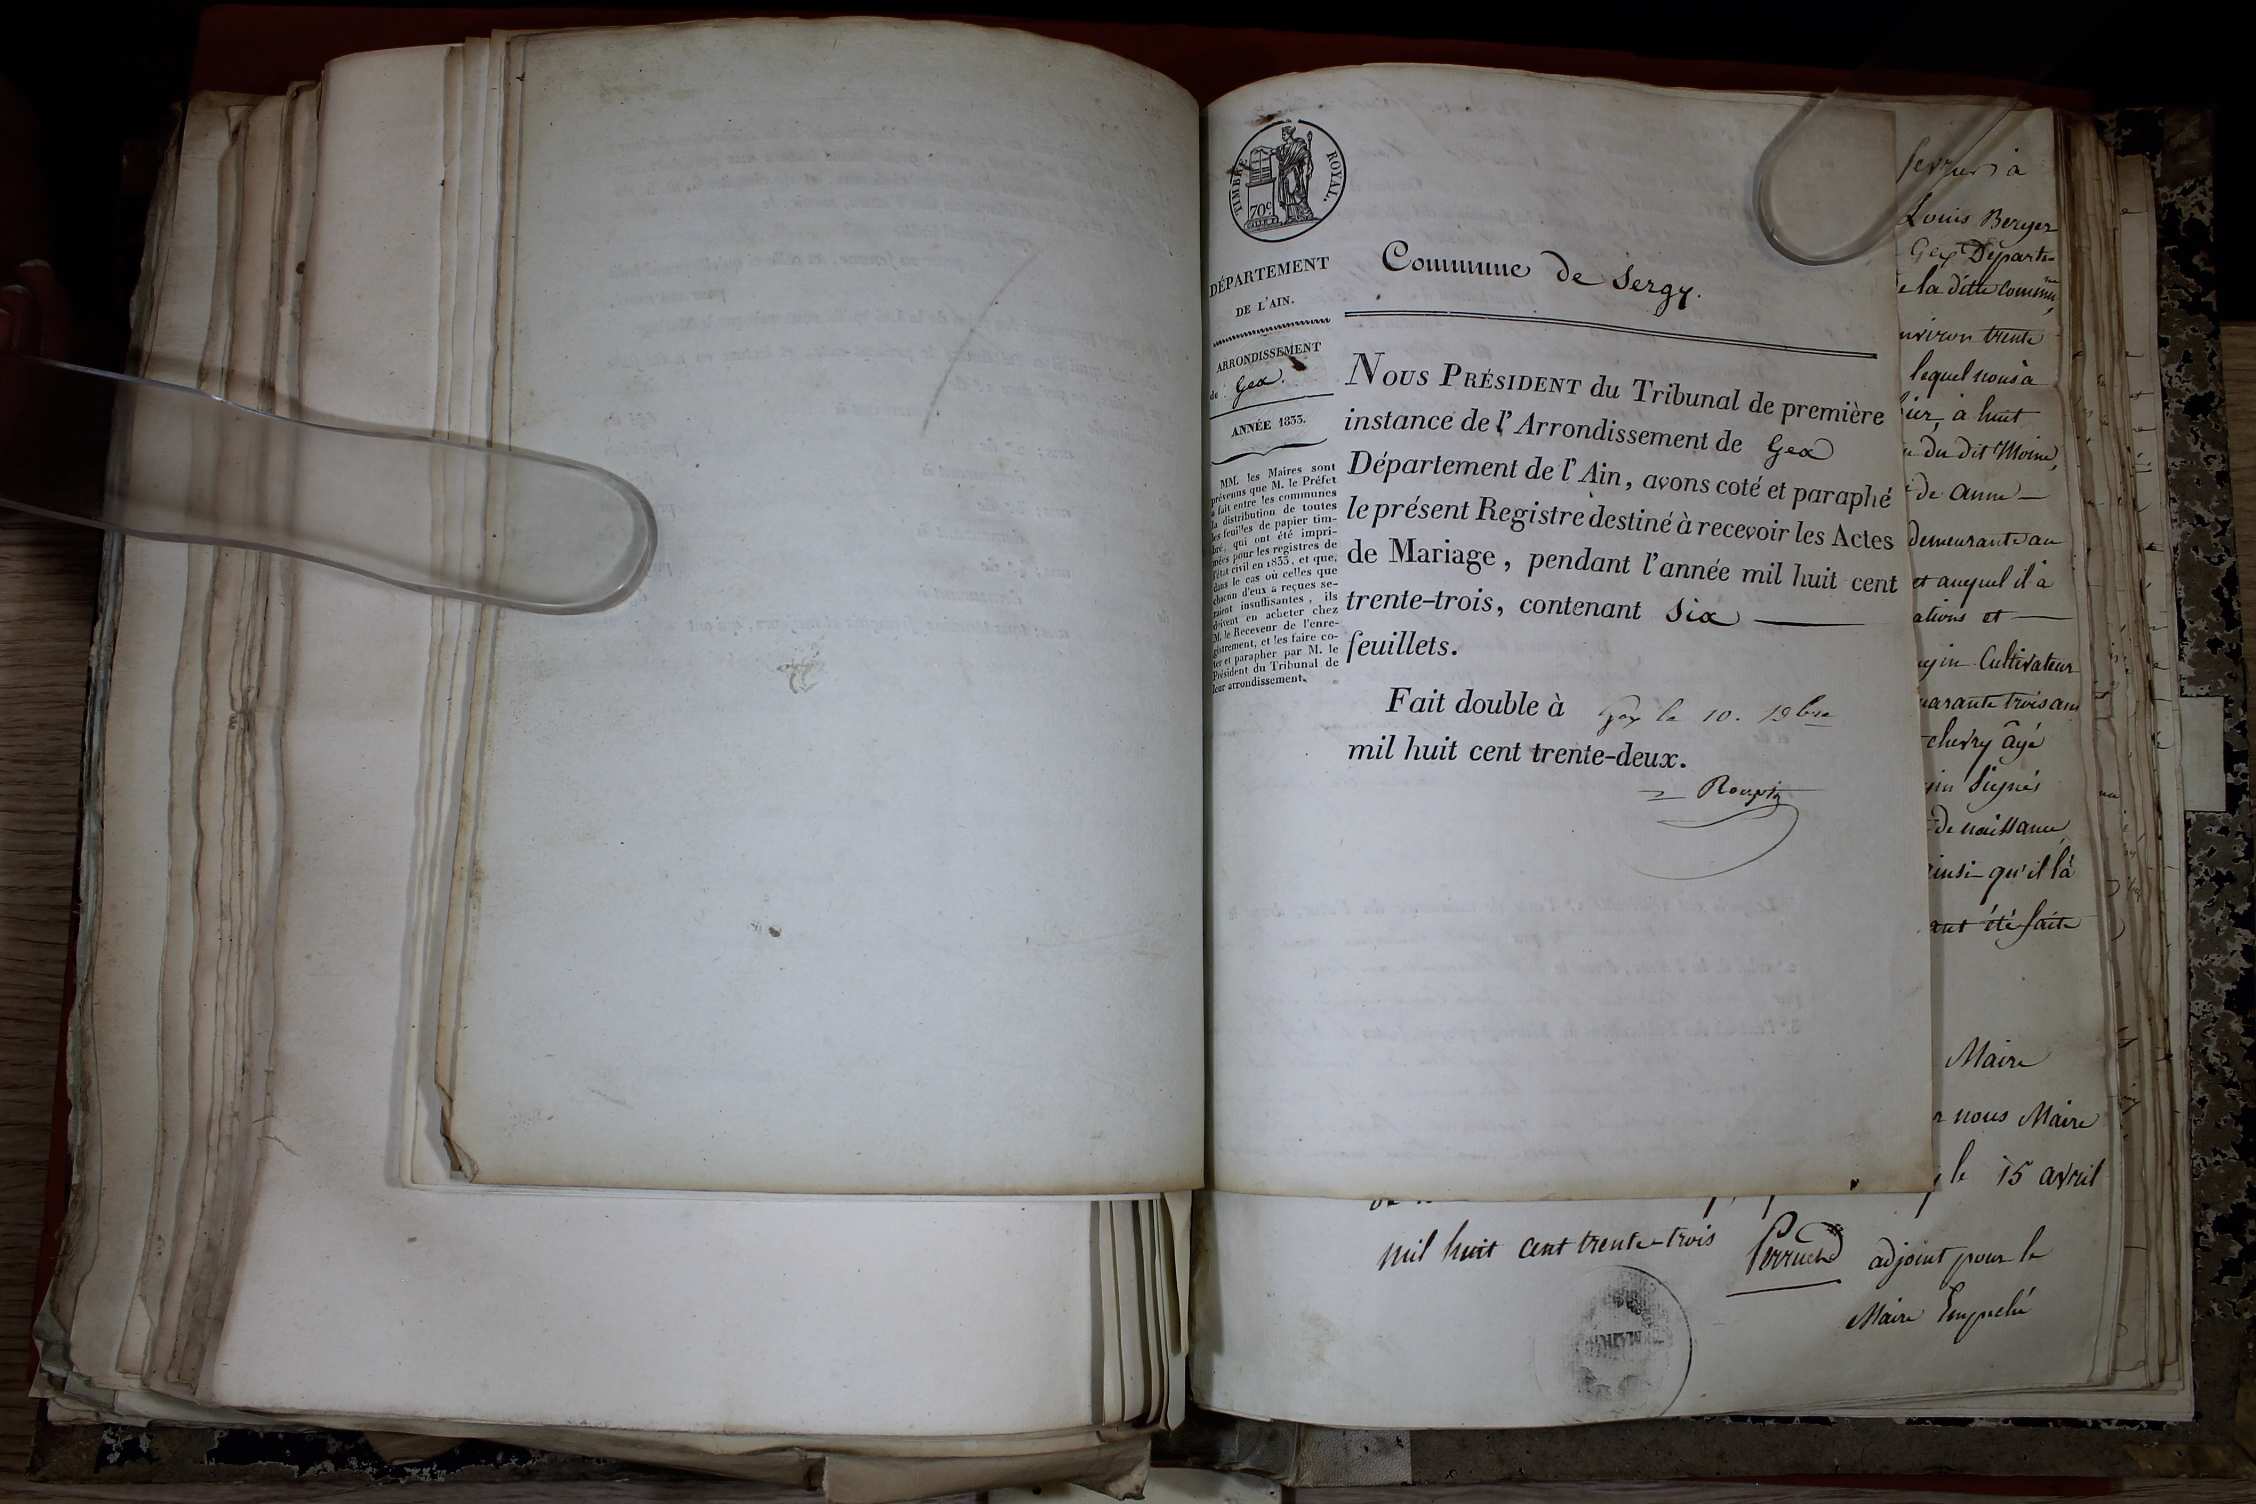 TIMBRE ROYAL.
70c
DÉPARTEMENT
DE L'AIN.
ARRONDISSEMENT
de Gex.
ANNÉE 1833.
MM. les Maires sont
prévenus que M. le Préfet
a fait entre les communes
la distribution de toutes
les feuilles de papier tim-
bré, qui ont été impri-
mées pour les registres de
l'état civil en 1833, et que,
dans le cas où celles que
chacun d'eux a reçues se-
raient insuffisantes, ils
doivent en acheter chez
M. le Receveur de l'enre-
gistrement, et les faire co-
ter et parapher par M. le
Président du Tribunal de
leur arrondissement.
Commune de Sergy.
NOUS PRÉSIDENT du Tribunal de première
instance de l'Arrondissement de Gex
Département de l'Ain, avons coté et paraphé
le présent Registre destiné à recevoir les Actes
de Mariage, pendant l'année mil huit cent
trente-trois, contenant six
feuillets.
Fait double à Gex le 10. 19bre
mil huit cent trente-deux.
fevrier à
Louis Berger
Gex Départe-
e la ditte commu
nviron trente
lequel nous à
ier, à huit
du dit Moine,
de anne
demeurante au
et auquel il à
ations et
gin Cultivateur
uarante trois ans
chevry âgé
gin Signés
de naissance,
ainsi qu'il l'à
ant été faite
Maire
r nous Maire
le 15 avril
mil huit cent trente-trois Perruchd adjoint pour le
Maire Empeché